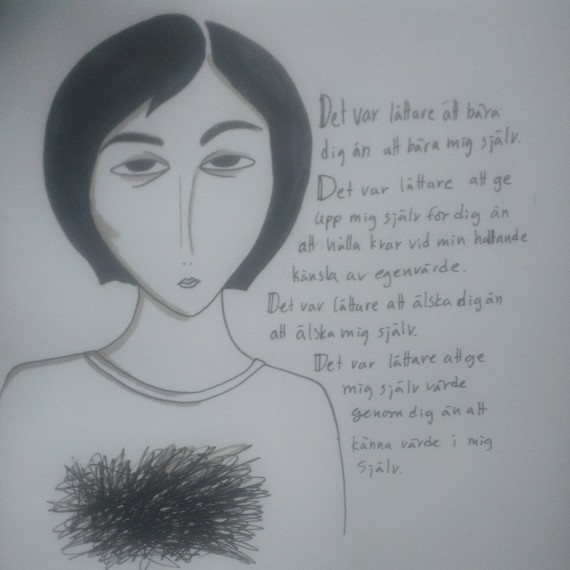 Det var lättare att bära
dig än att bära mig själv.
Det var lättare att ge
upp mig själv för dig än
att hålla kvar vid min haltande
känsla av egenvärde.
Det var lättare att älska dig än
att älska mig själv.
Det var lättare att ge
mig själv värde
genom dig än att
känna värde i mig
själv.